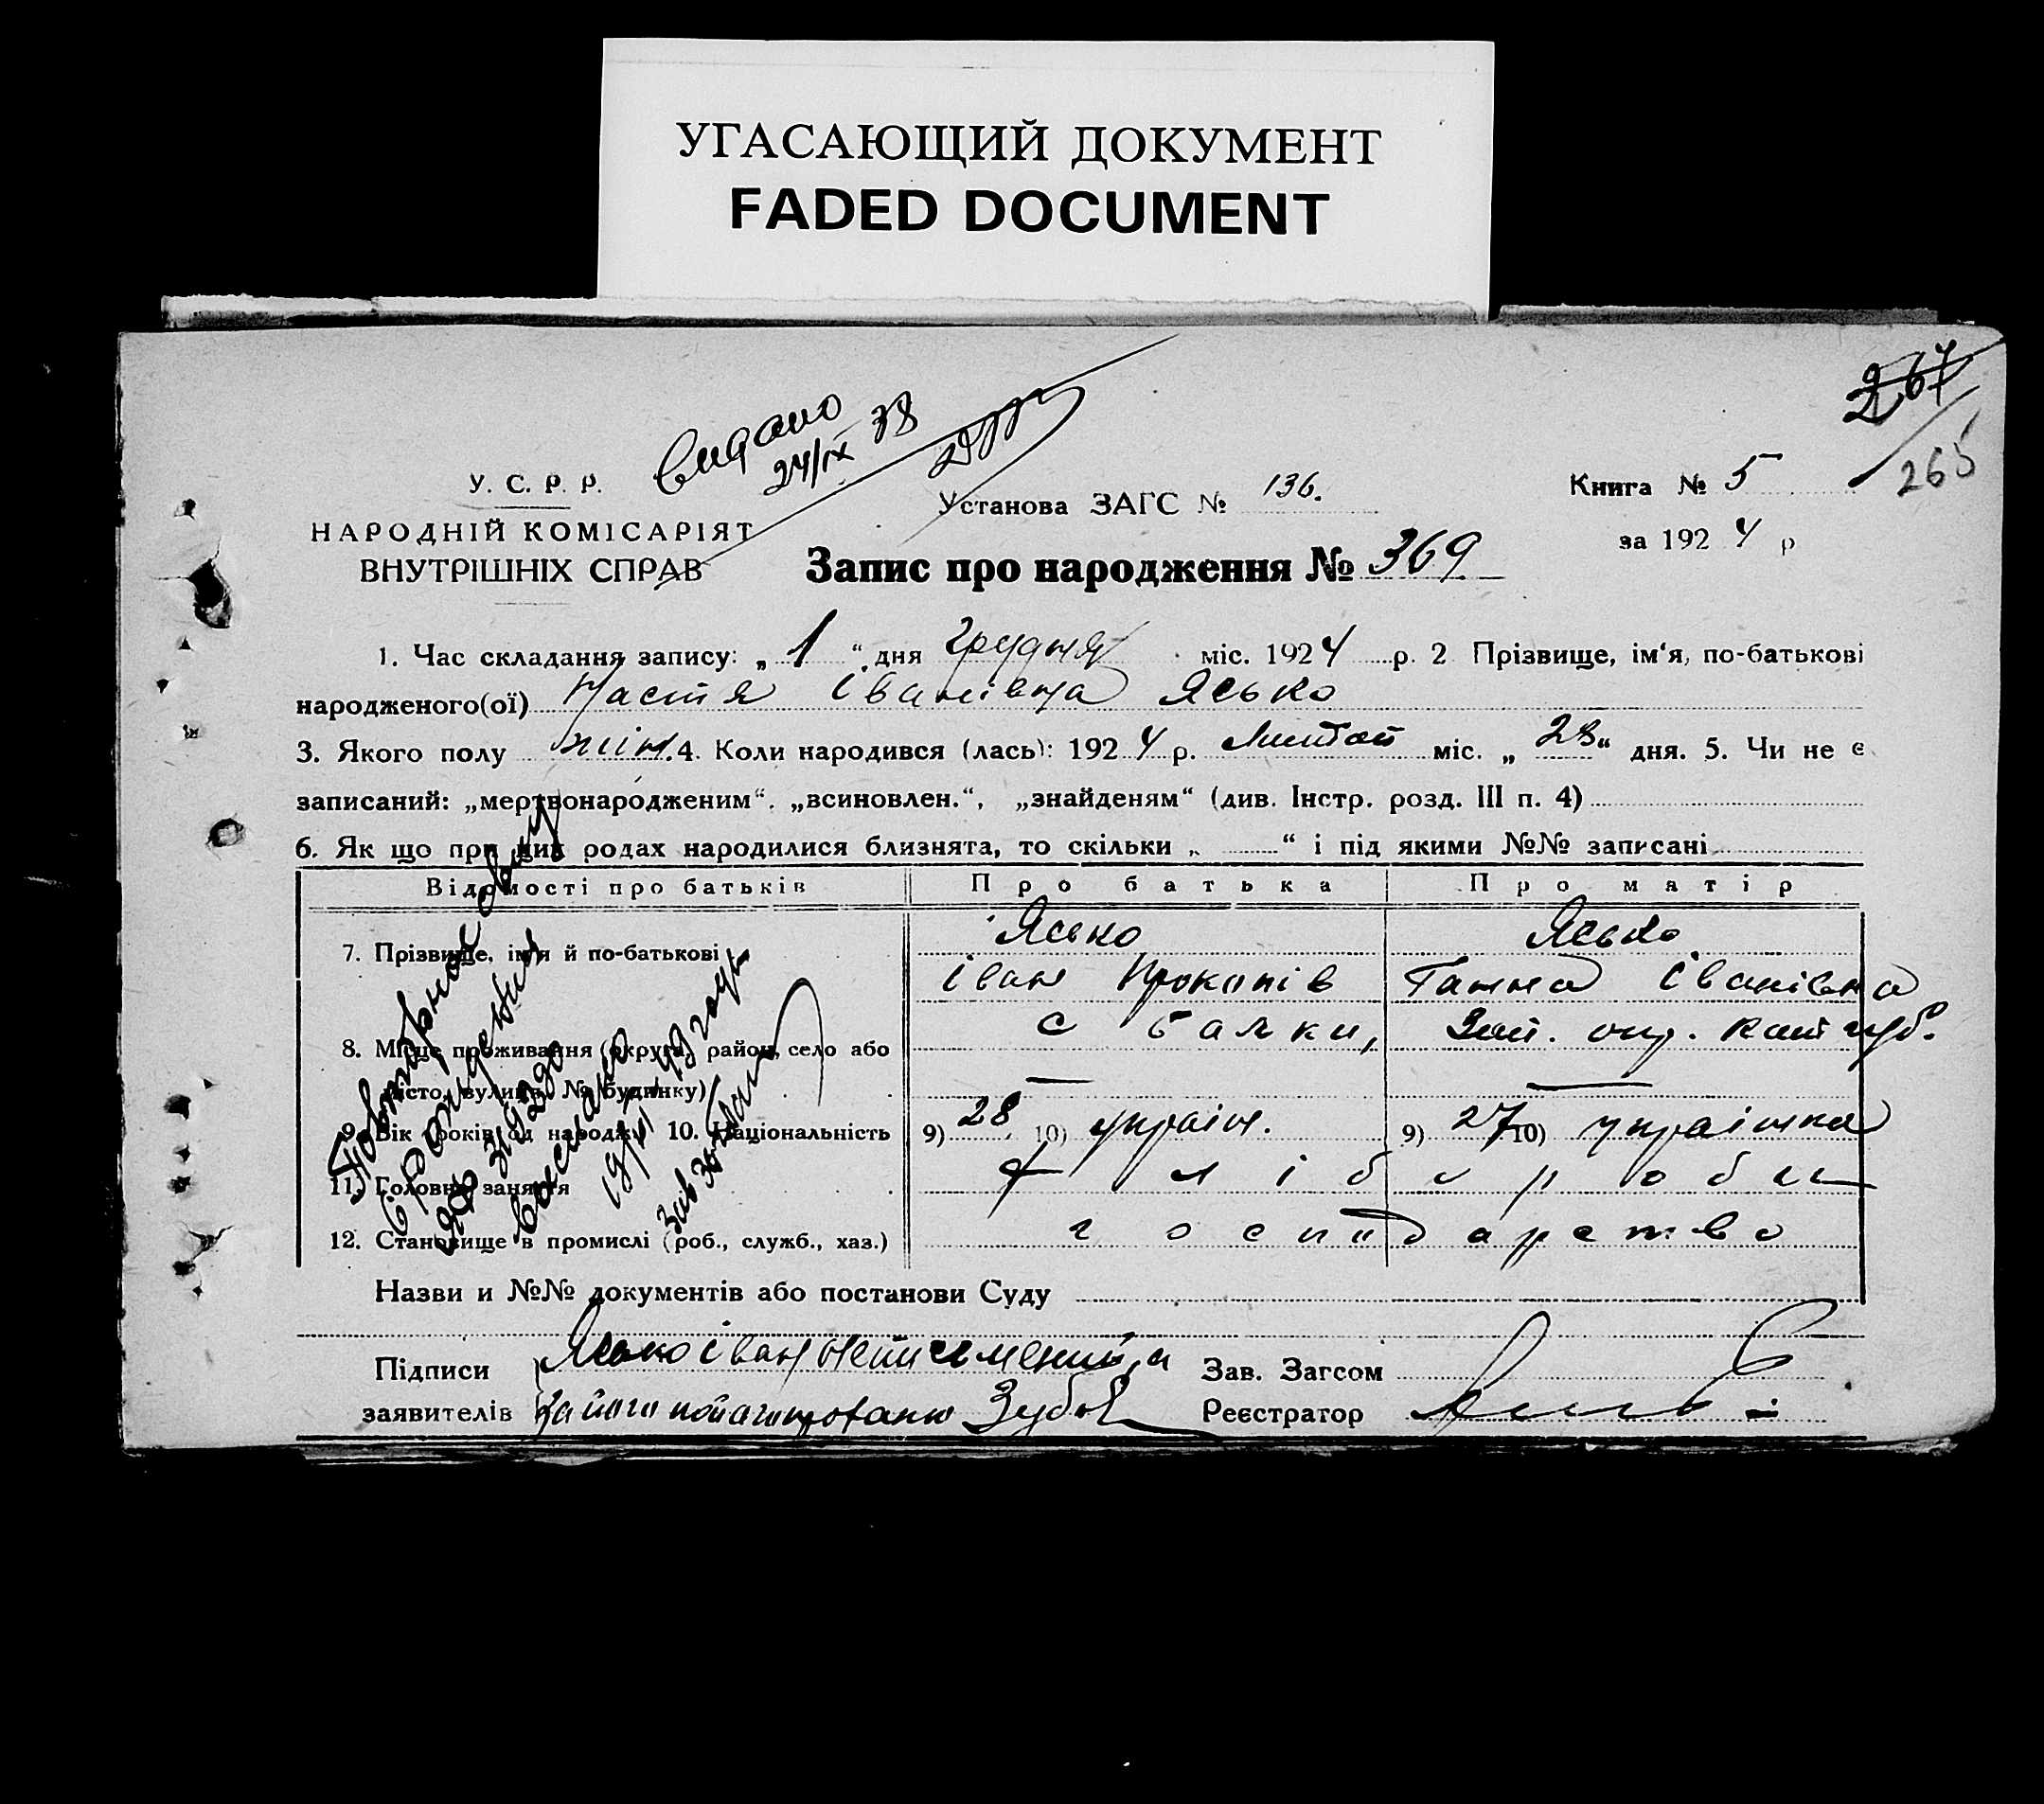 УГАСАЮЩИЙ ДОКУМЕНТ
FADED DOCUMENT
267
265
Видано
24/ІХ 38
У. С. Р. Р.
НАРОДНІЙ КОМІСАРІЯТ
ВНУТРІШНІХ СПРАВ
Установа ЗАГС № 136.
Книга № 5
за 1924 р
Запис про народження № 369
1. Час складання запису: „ 1 “ дня Грудня міс. 1924 р. 2 Прізвище, ім'я, по-батькові
народженого(ої) Настя Іванівна Ясько
3. Якого полу жін. 4. Коли народився (лась): 1924 р. Листоп міс. „ 28 “ дня. 5. Чи не є
записаний: „мертвонародженим“. „всиновлен.“, „знайденям“ (див. Інстр. розд. III п. 4)
6. Як що при цих родах народилися близнята, то скільки „ “ і під якими №№ записані
Відомості про батьків Про батька Про матір
7. Прізвище, ім'я й по-батькові Ясько Ясько
Іван Прокопів Ганна Іванівна
8. Місце проживання (округа, район, село або с Балки, Зап. окр. Кат губ.
місто, вулиця, № будинку)
9. Вік (років од народж.) 10. Національність 9) 28 10) україн. 9) 27 10) українка
11. Головне заняття хлібороби
12. Становище в промислі (роб., служб., хаз.) господарство
Повторное
Зав
Назви и №№ документів або постанови Суду
Підписи Ясько Іван неписьменний, а Зав. Загсом
заявителів за його Зубов Реєстратор